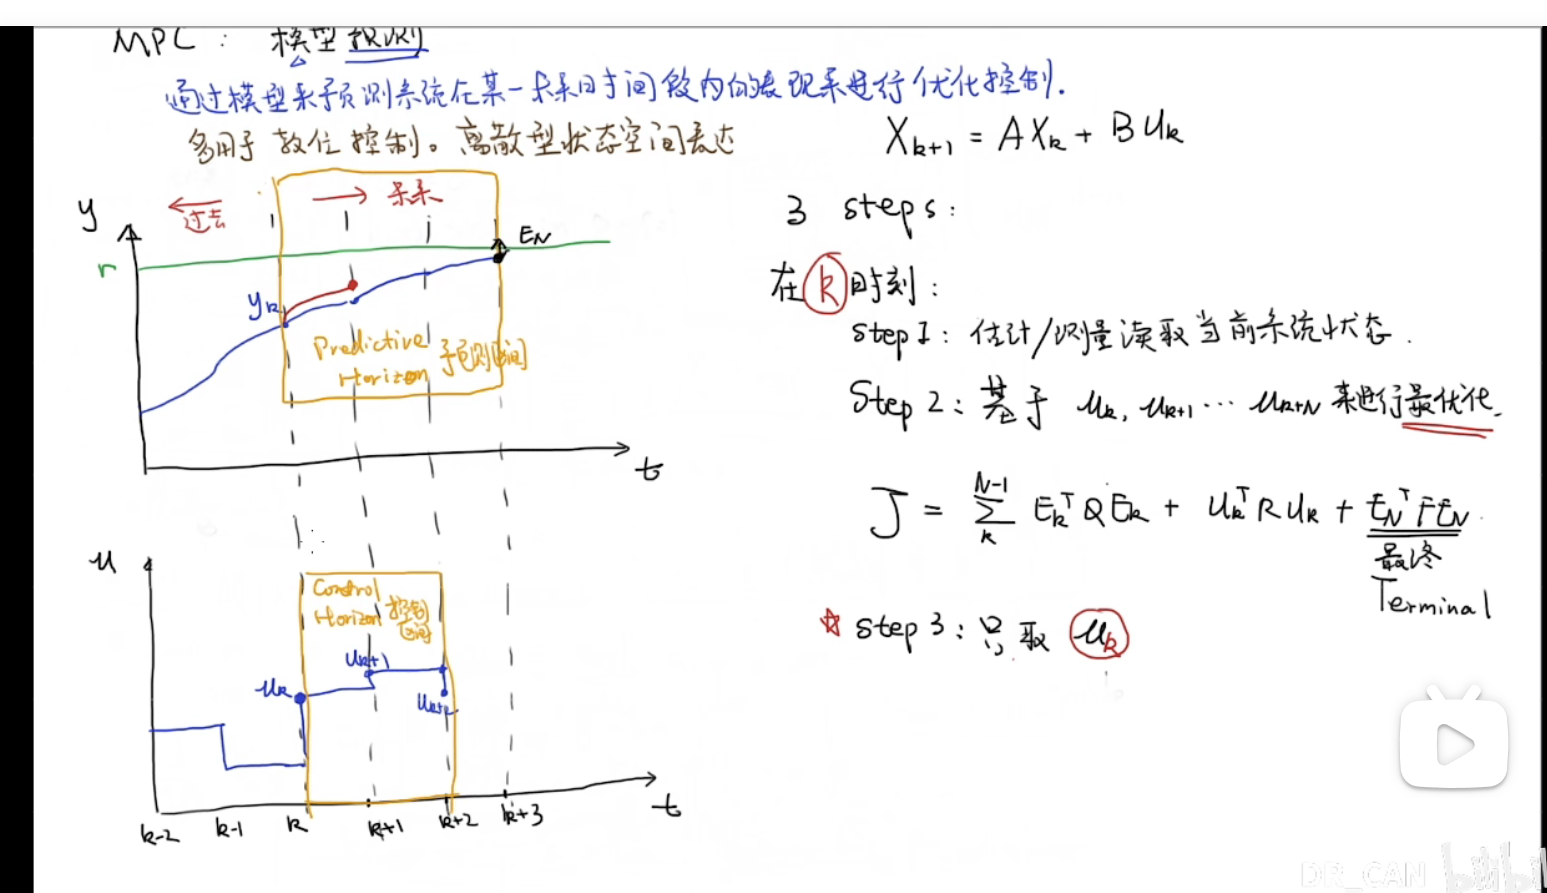 MPC: 模型预测
通过模型来预测系统在某一未来时间段内的表现来进行优化控制.
多用于数位控制。离散型状态空间表达
X_{k+1} = AX_k + BU_k
y
过去
未来
E_N
r
y_k
Predictive
Horizon
预测区间
t
u
Control
Horizon
控制
区间
u_k
u_{k+1}
u_{k+2}
k-2 k-1 k k+1 k+2 k+3
t
3 steps:
在k时刻:
step1: 估计/测量读取当前系统状态.
Step 2: 基于 u_k, u_{k+1} ... u_{k+N} 来进行最优化.
J = \sum_k^{N-1} E_k^T Q E_k + U_k^T R U_k + E_N^T F E_N
最终
Terminal
☆ step 3: 只取 u_k
DR_CAN bilibili